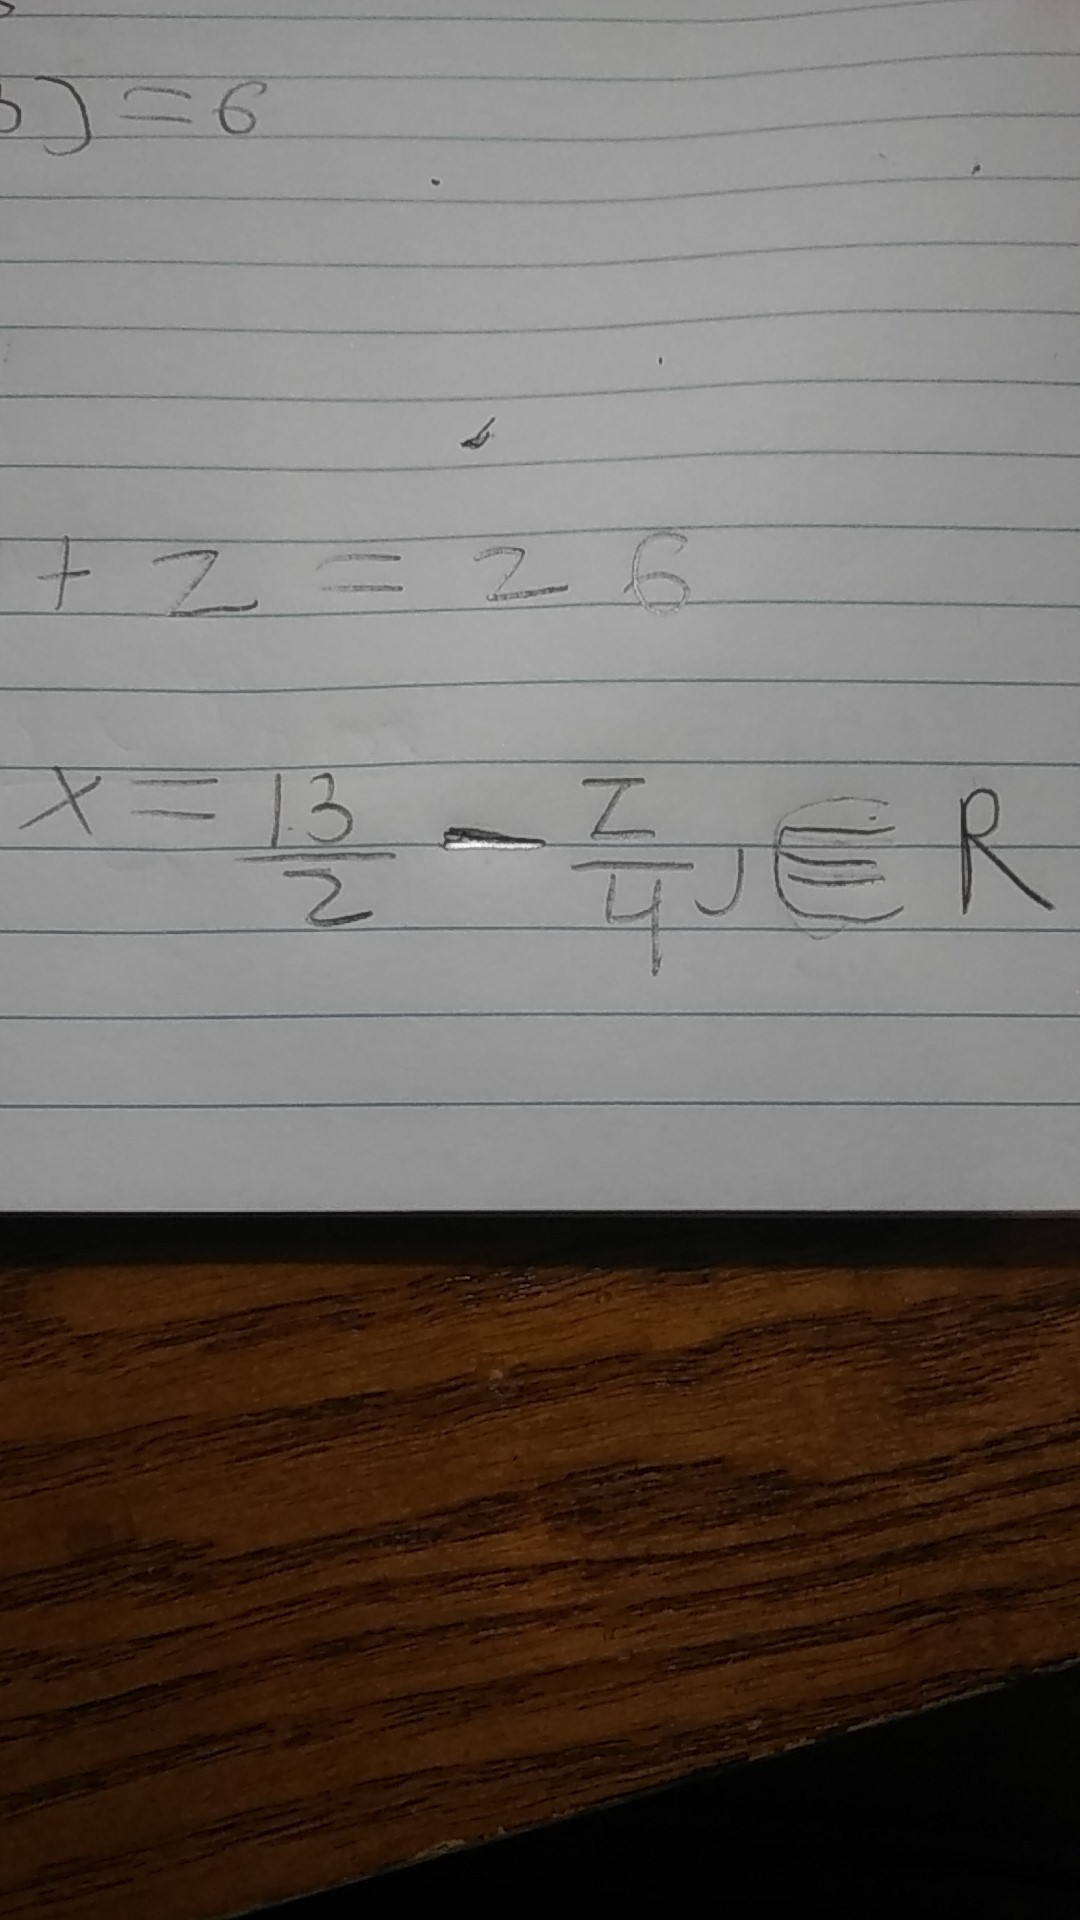 ) = 6
+ Z = 26
X = 13/2 - Z/4 J ∈ R